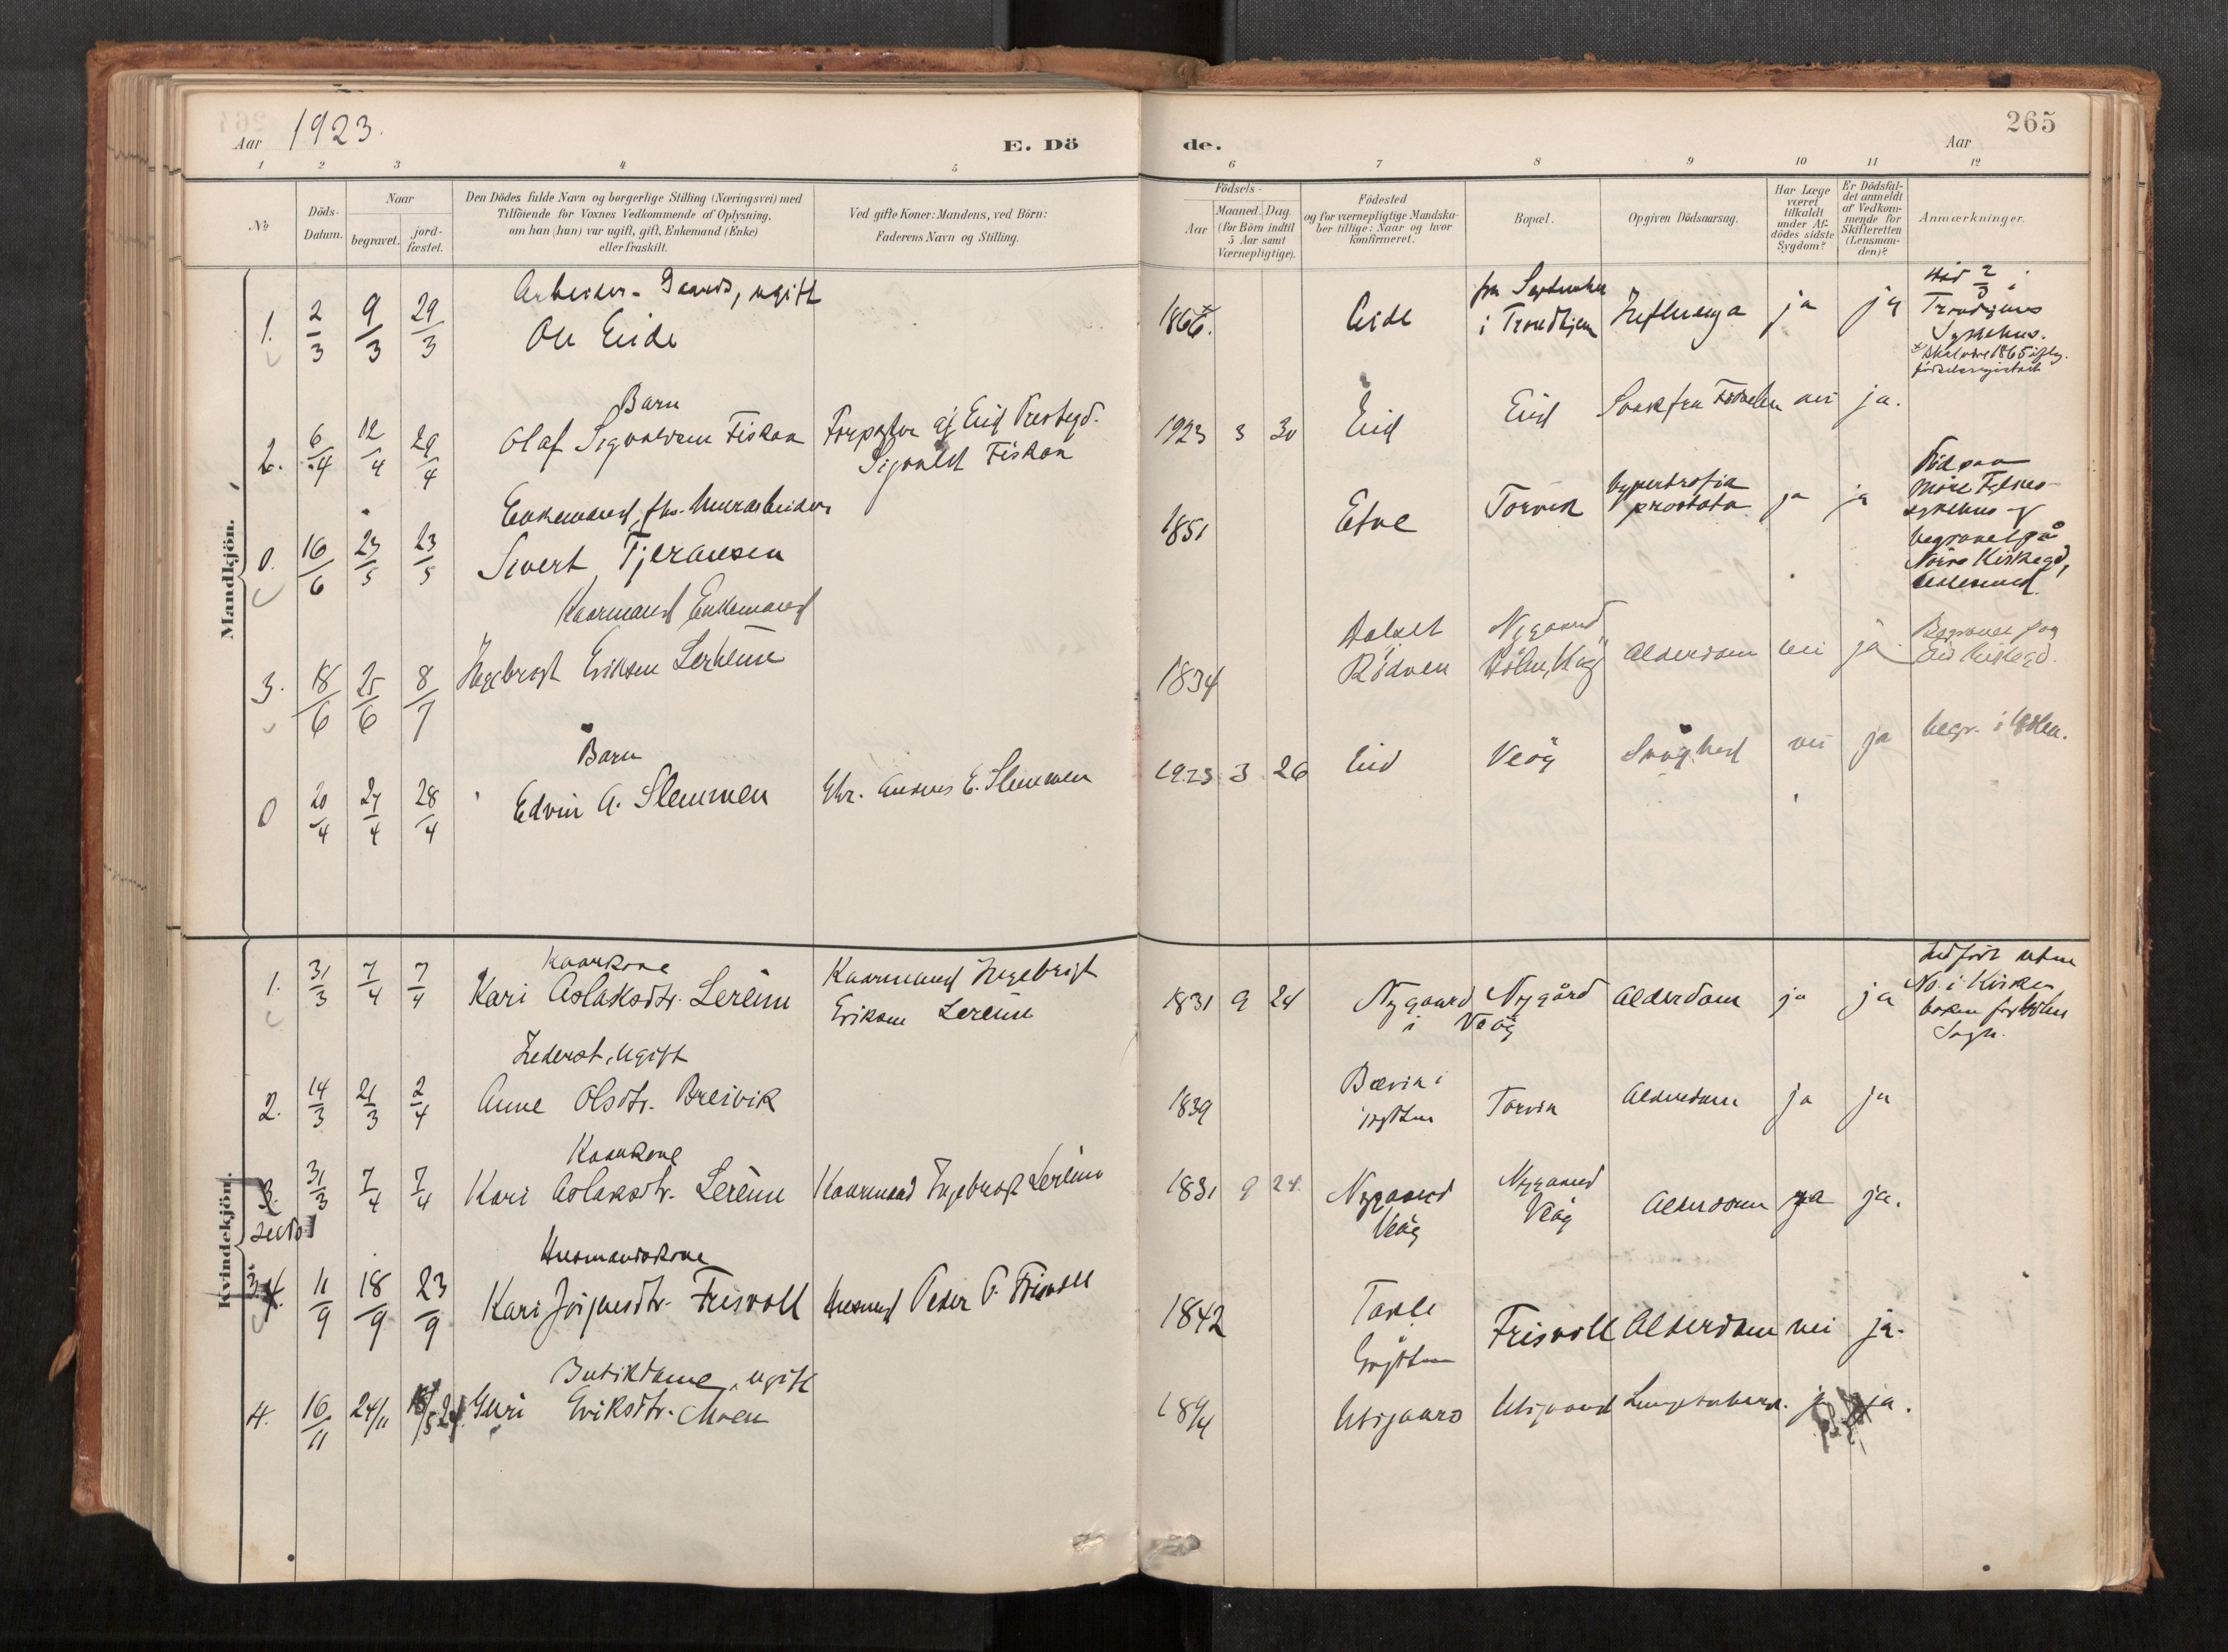 265
Aar 1923.
E. Döde.
Aar
1 2 3 4 5 6 7 8 9 10 11 12
No
Döds-Datum.
Naar
begravet.
jordfæstet.
Den Dödes fulde Navn og borgerlige Stilling (Næringsvei) med
Tilföiende for Voxnes Vedkommende af Oplysning,
om han (hun) var ugift, gift, Enkemand (Enke)
eller fraskilt.
Ved gifte Koner: Mandens, ved Börn:
Faderens Navn og Stilling.
Födsels-
Aar
Maaned. Dag.
(for Börn indtil
5 Aar samt
Værnepligtige).
Födested
og for værnepligtige Mandska-
ber tillige: Naar og hvor
konfirmeret.
Bopæl.
Opgiven Dödsaarsag.
Har Læge
været
tilkaldt
under Af-
dödes sidste
Sygdom?
Er Dödsfal-
det anmeldt
af Vedkom-
mende for
Skifteretten
(Lensman-
den)?
Anmærkninger.
Mandkjön.
Arbeider, ugift
1. 2/3 9/3 29/3 Ole Eide 1866. Eide fra September i Trondhjem Influenza ja ja
Trondhjems
Sykehus.
Barn
2. 6/4 12/4 29/4 Olaf Sigvaldsen Fiskan Forpakter af Eid Prestegd. Sigvald Fiskan 1923 3 30 Eid Eid Svak fra Födselen nei ja.
Enkemand, fhv. Murarbeider
0. 16/6 23/5 23/5 Sivert Tjeransen 1851 Etne Torvik hypertrofia prostata ja ja
Död paa
Möre Fylkes-
sykehus og
begravet på
Nörve Kirkegd,
Aalesund.
Kaarmand Enkemand
3. 18/6 25/6 8/7 Ingebrigt Eriksen Lerheim 1834 Dalset Rödven Nygaard Holm, Veöy Alderdom nei ja
Begravet paa
Eid Kirkegd.
Barn
0 20/4 27/4 28/4 Edvin A. Slemmen Gbr. Anders E. Slemmen 1923 3 26 Eid Veöy Svaghed nei ja begr. i Holm.
Kvindekjön.
Kaarkone
1. 31/3 7/4 7/4 Kari Aslaksdtr. Lereim Kaarmand Ingebrigt Eriksen Lereim 1831 9 24 Nygaard i Veöy Nygård Alderdom ja ja
Indfört uten
No. i Kirke-
boken for Holm
Sogn.
Inderst, ugift
2. 14/3 21/3 2/4 Anne Olsdtr. Breivik 1839 Torvik Alderdom ja ja
Kaarkone
3. 31/3 7/4 7/4 Kari Aslaksdtr. Lereim Kaarmand Ingebrigt Lereim 1831 9 24. Nygaard Veöy Nygaard Veöy Alderdom ja ja.
se No 1
Husmandskone
3. 11/9 18/9 23/9 Kari Jörgensdtr. Frisvoll Husmand Peder P. Frisvoll 1842 Tokle Grytten Frisvoll Alderdom nei ja.
Butikdame, ugift
4. 16/11 24/11 Guri Eriksdtr. Moen 1894 Utigaard Utigaard Lungetuberk. ja ja.